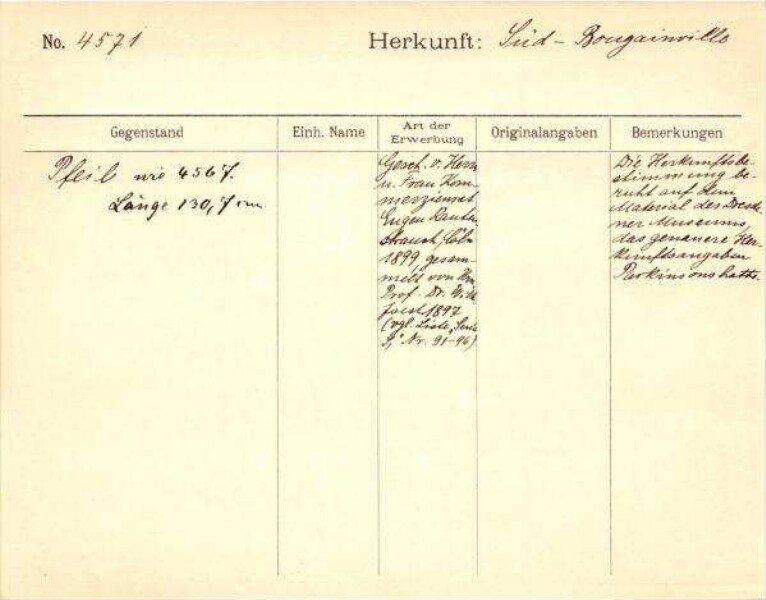 No. 4571 Herkunft: Süd-Bougainville
Gegenstand Einh. Name Art der Erwerbung Originalangaben Bemerkungen
Pfeil wie 4567.
Länge 130,7 cm
Gesch. v. Herrn
u. Frau Kom-
merzienrat
Eugen Rauten-
strauch, Cöln
1899 gesam-
melt von Hn
Prof. Dr. Wilh
Joest 1897
(vgl. Liste, Serie
Nr. 91-96)
Die Herkunftsbe-
stimmung be-
ruht auf dem
Material des Dresde-
ner Museums,
das genauere Her-
kunftsangaben
Parkinsons hatte.